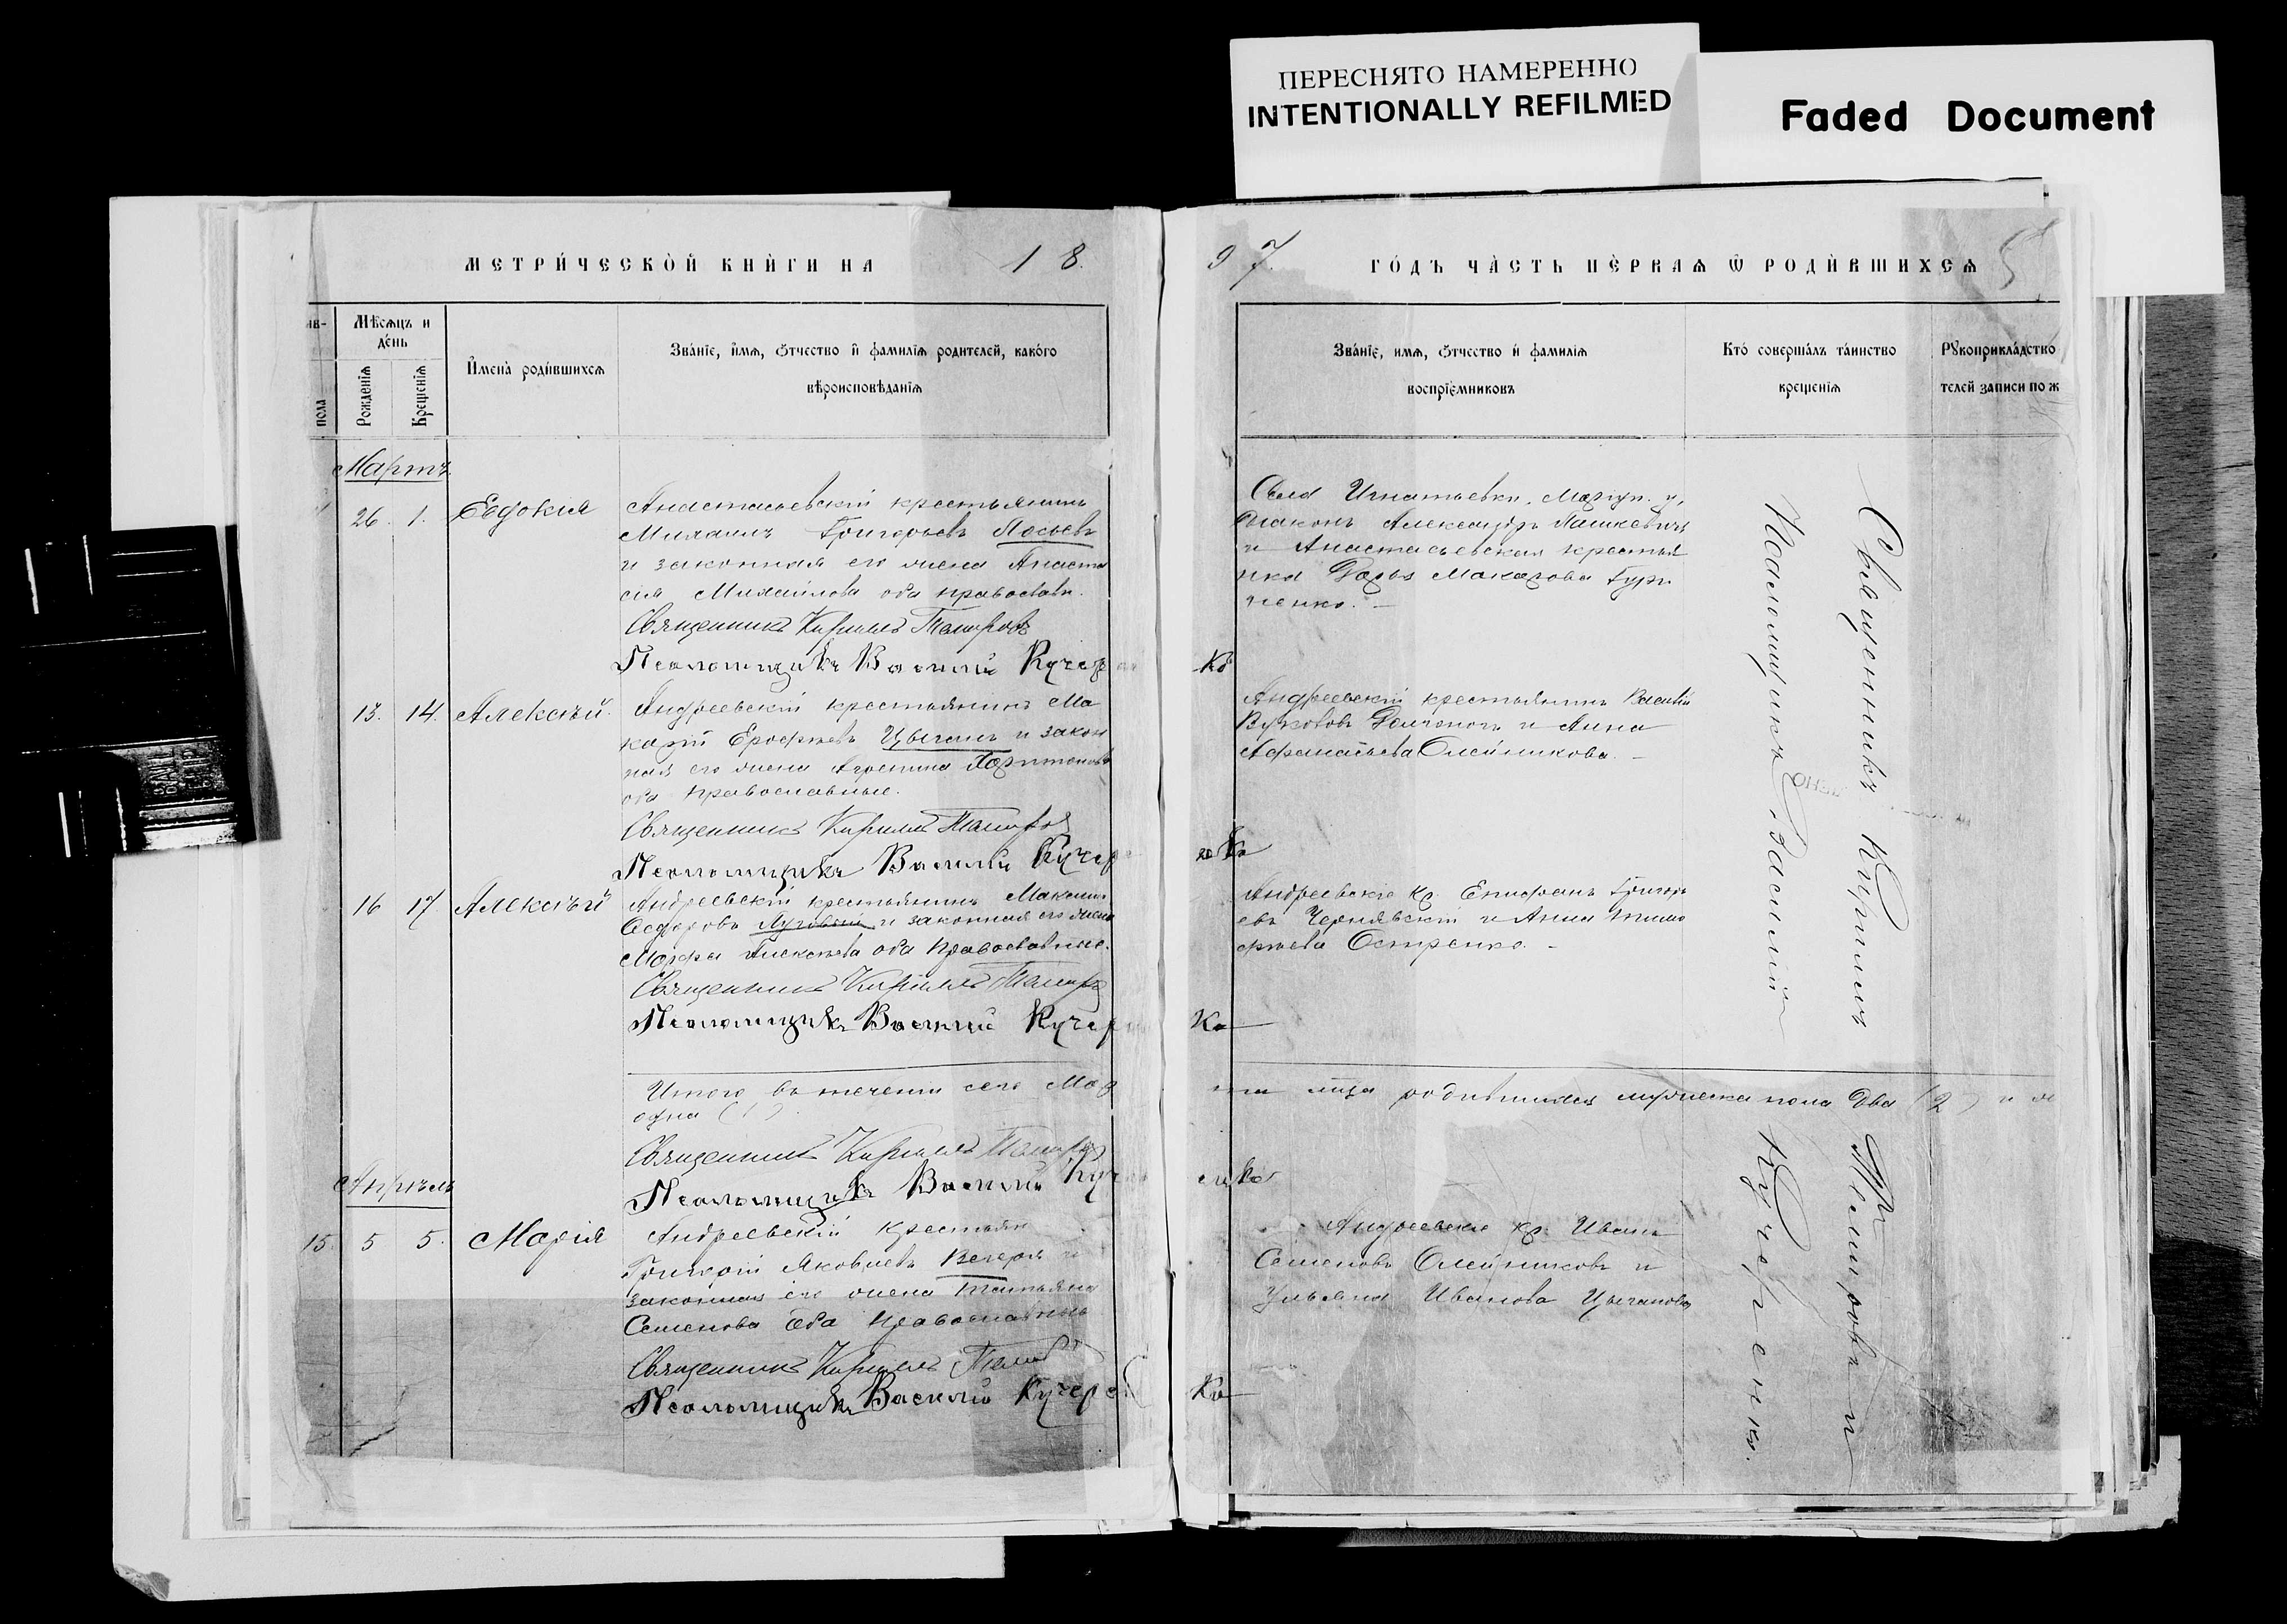 ПЕРЕСНЯТО НАМЕРЕННО
INTENTIONALLY REFILMED
Faded Document
МЕТРИ́ЧЕСКОЙ КНЍГИ НА 18
97. ГО́ДЪ ЧА̀СТЬ ПЀРВАѦ Ѿ РОДЍВШИХСѦ 5
Мѣсѧцъ и
де́нь
пола
Рожденіѧ
Крещеніѧ
И҆мена̀ роди́вшихсѧ
Зва́ніе, и҆мѧ, ѻ҆тчество и҆ фамилїѧ родителей, како́го
вѣроисповѣданїѧ
Зва́нїе, имѧ, ѻ҆тчество и҆ фамилїѧ
воспрїемниковъ
Кто̀ соверша́лъ та́инство
крещенїѧ
Рꙋкоприкла́дство
телей записи по ж
Мартъ
26. 1. Евдокія
Анастасьевскій крестьянинъ
Михаилъ Григорьевъ Лосьевъ
и законная его жена Анаста
сія Михайлова оба православн.
Священникъ Кириллъ
Псаломщикъ Василій Кучер
Села Игнатьевки, Маріуп. у,
Диаконъ Александръ Пашкевичъ
и Анастасьевская крестья
нка Дарья Макарова Гури
ченко. –
ко
13. 14. Алексѣй.
Андреевскій крестьянинъ Ма
карій Ерофѣевъ Цыганъ и закон
ная его жена Агрепина Харитонова
оба православные.
Священникъ Кириллъ
Псаломщикъ Василій Кучер
Андреевскій крестьянинъ Василій
и Анна
Афанасьева Олейникова. –
ко
16 17 Алексѣй
Андреевскій крестьянинъ Максимъ
Федоровъ Луговый и законная его жена
Марфа Алексѣева оба православные.
Священникъ Кириллъ
Псаломщикъ Василій Кучер
Андреевскіе кр. Епифанъ Григорь
евъ Чернявскій и Анна Тимо
фѣева Остренко. –
ко
Итого въ теченіи сего Мар
та мѣца родившихся мужеска пола два (2) и ж
одна (1).
Священникъ Кириллъ
Псаломщикъ Василій Куч
ко
Апрѣль
15. 5 5. Марія
Андреевскій крестьян
Григорій Яковлевъ Вечеря и
законная его жена Татьяна
Семенова оба православные
Священникъ Кириллъ
Псаломщикъ Василій Кучере
Андреевскіе кр. Иванъ
Семеновъ Олейниковъ и
Ульяна Иванова Цыганова
ко
Священникъ Кириллъ и
Псаломщикъ Василій Кучеренко.